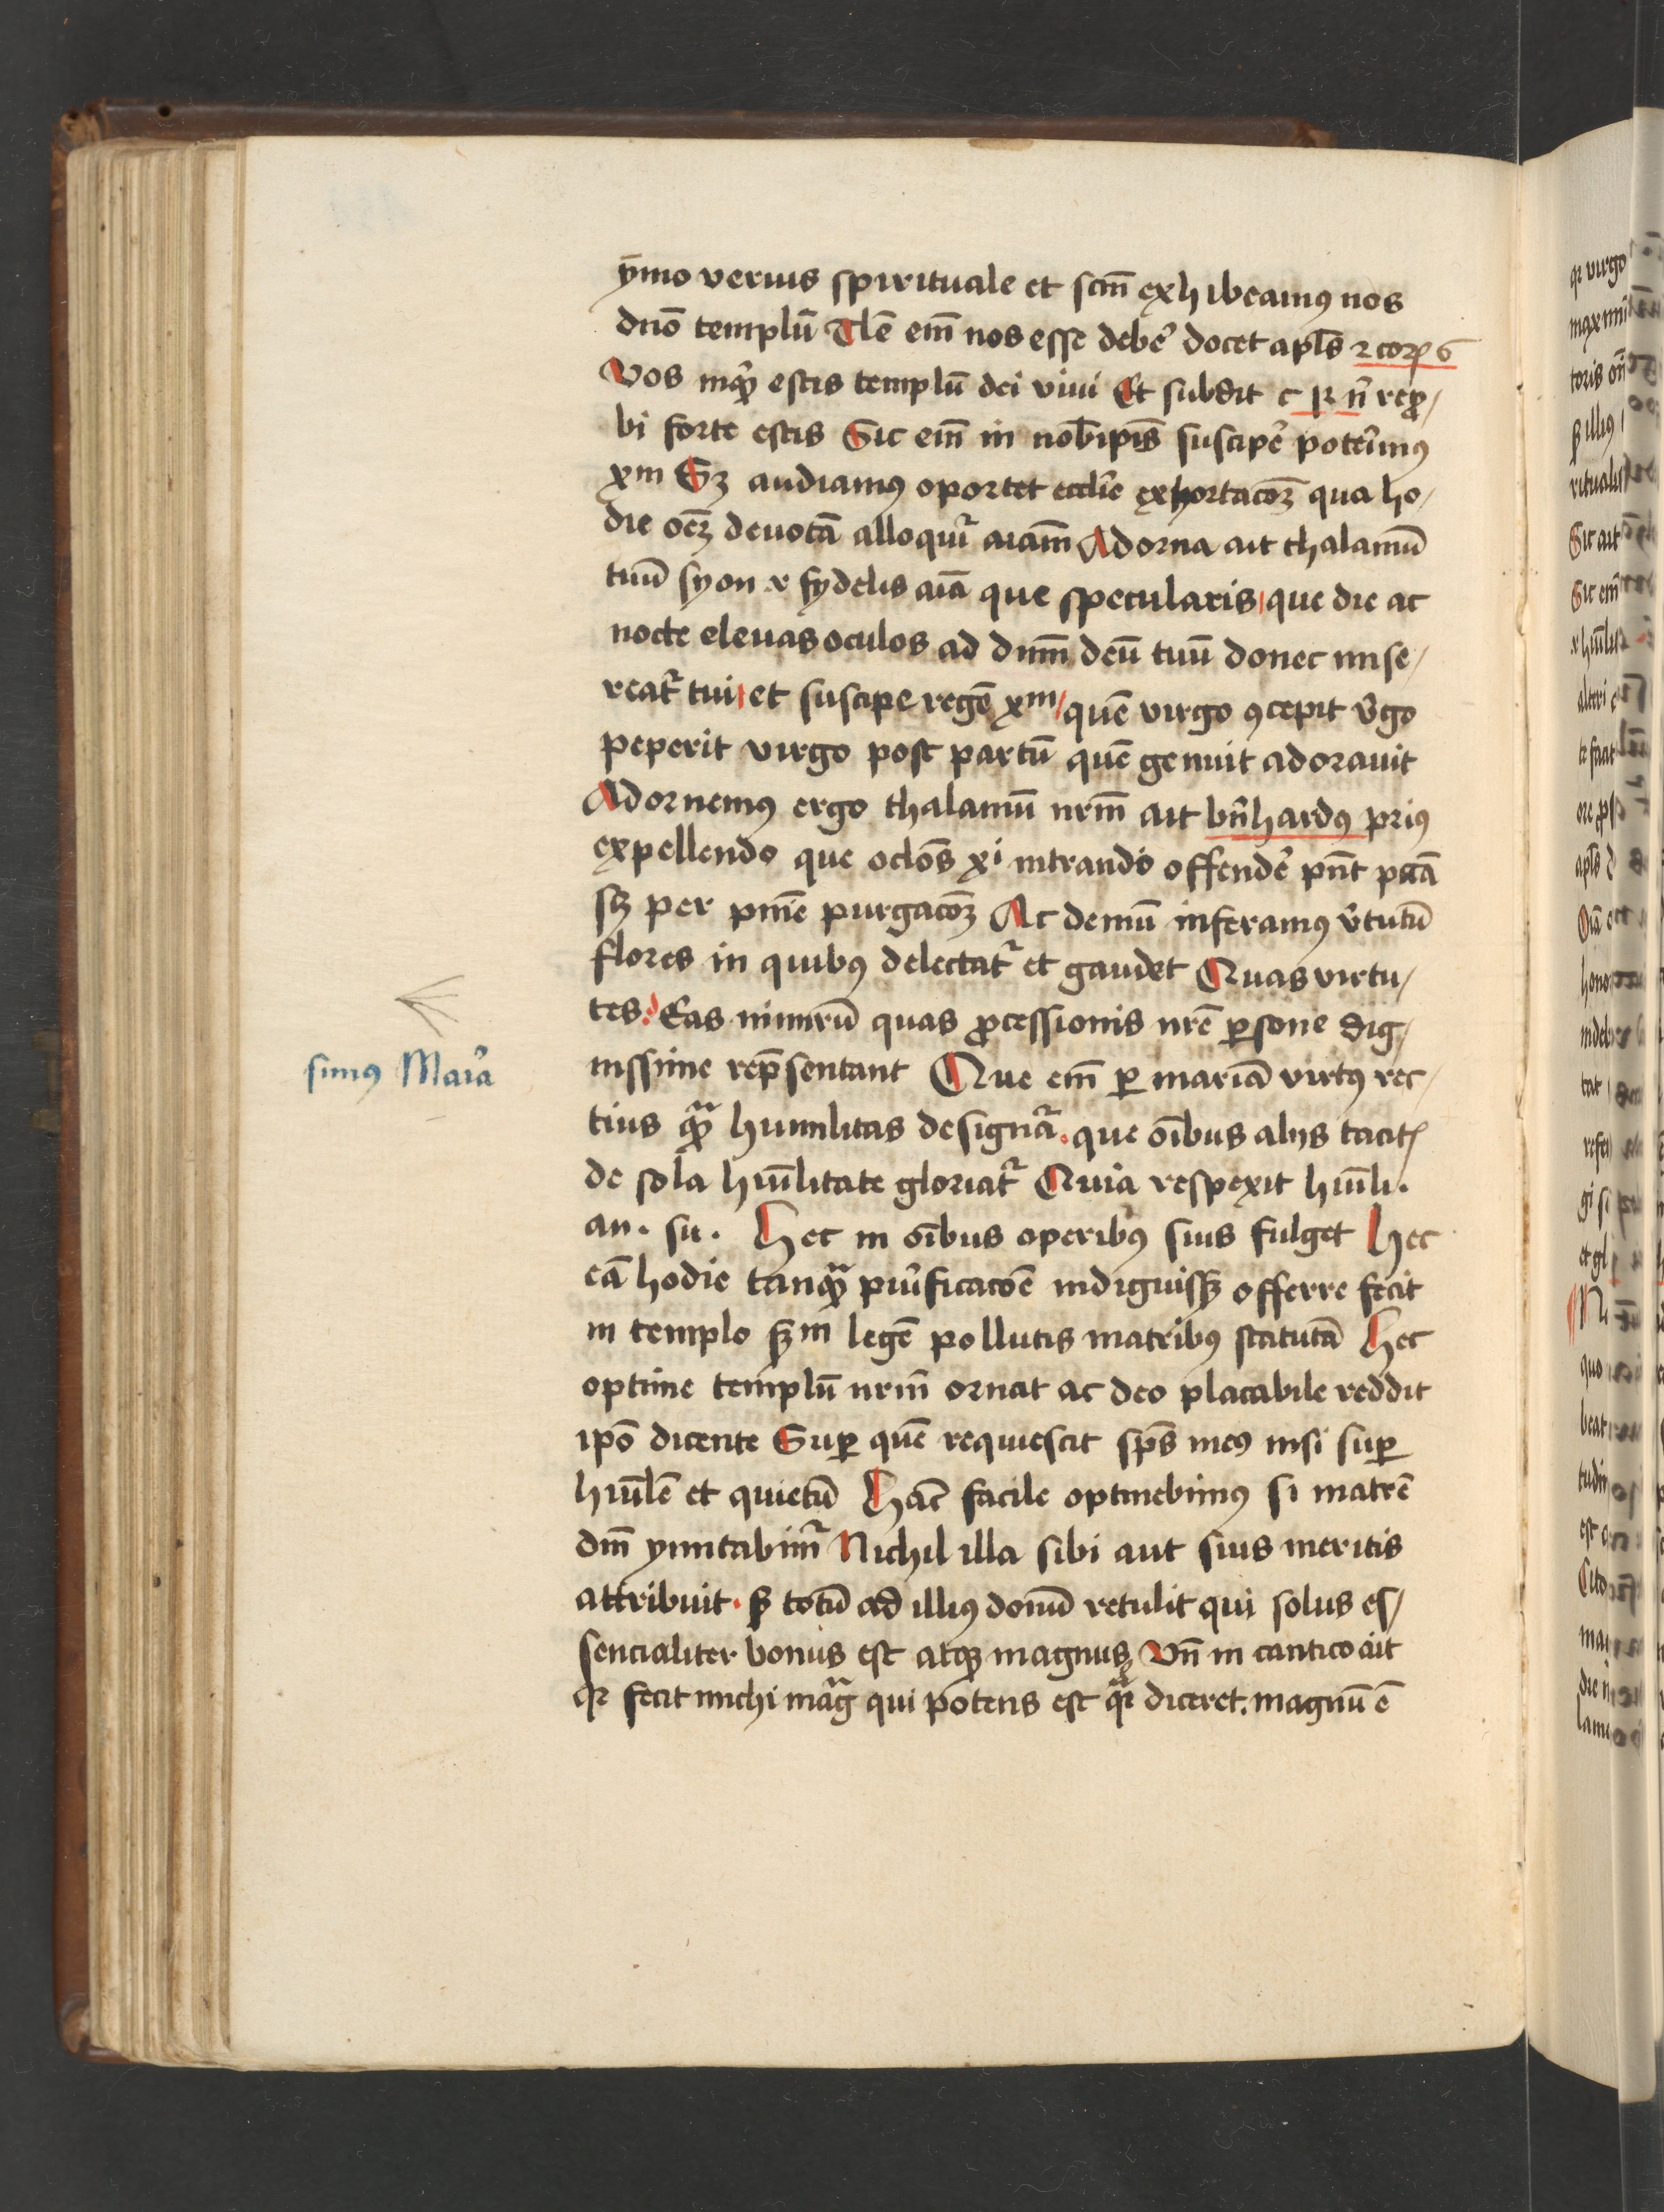 ymo verius spirituale et scm̄ exhibeamꝰ nos
dnō templū Tlē em̄ nos esse debe᷑ docet apls̄ 2 corꝝ 6
Vos inqͣ estis templū dei viui Et subdit nͥ repro/
bi forte estis Sic em̄ in nobipis̄ suscipe᷑ poterimꝰ
xm Sꝫ audiamꝰ oportet ecclie᷑ exhortacōꝫ qua ho/
die oēꝫ deuotā alloquit᷑ aiam̄ Adorna ait thalamū
tuū syon fydelis aiā que specularis que die ac
nocte eleuas oculos ad dnm̄ deū tuū donec mise/
reat᷑ tui et suscipe regē xm quē virgo ꝯcepit v᷑go
peperit virgo post partū quē genuit adorauit
Adornemꝰ ergo thalamū nrm̄ ait bn̄hardꝰ priꝰ
expellendo que oclōs xi intrando offende᷑ pn̄t pctā
sꝫ per pnīe purgacōꝫ Ac demū inferamꝰ v᷑tutū
flores in quibꝰ delectat᷑ et gaudet Quas virtu/
tes Eas nimirū quas ꝓcessionis nrē ꝑsone dig/
nissime rep̄sentant Que em̄ ꝑ mariā virtꝰ rec/
tius qͣ humilitas designat᷑ que oībus alijs tacitꝭ
de sola hūilitate gloriat᷑ Quia respexit hūili.
an. su. Hec in oībus operibꝰ suis fulget Hec
eā hodie tanqͣ purificacōē indiguissꝫ offerre fecit
in templo scd̄m legē pollutis matribꝰ statutā Hec
optime templū nrm̄ ornat ac deo placabile reddit
ipō dicente Suꝑ quē requiescit sps̄ meꝰ nisi suꝑ
hūilē et quietū Hāc facile optinebimꝰ si matrē
dnī ymitabimr᷑ Nichil illa sibi aut suis meritis
attribuit. sꝫ totū ad illiꝰ donū retulit qui solus es/
sencialiter bonus est atqꝫ magnus Vn̄ in cantico ait
qꝛ fecit michi mag̃ qui potens est qͣi diceret. magnū ē
simꝰ Maria᷑